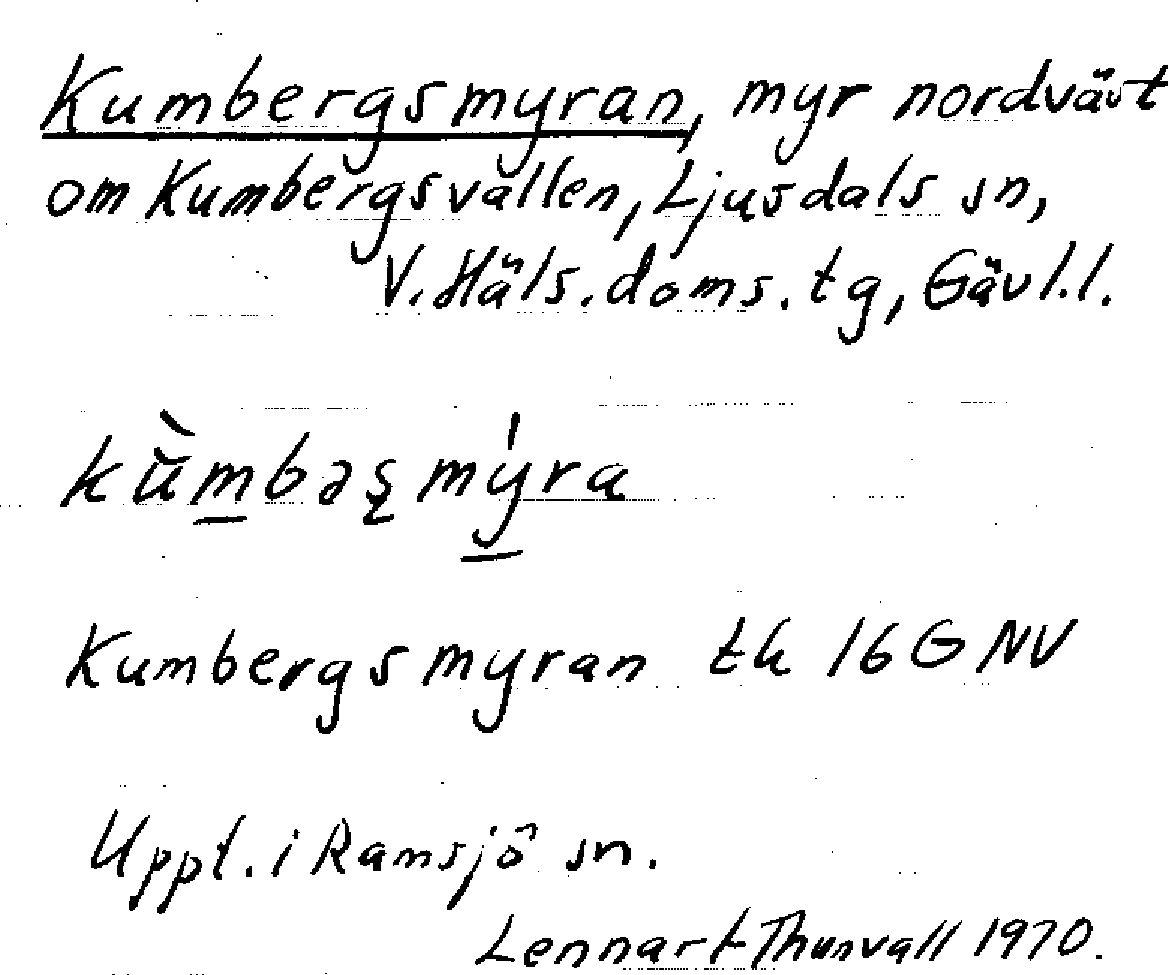 Kumbergsmyran, myr nordväst
om Kumbergsvallen, Ljusdals sn,
V. Häls. doms. tg, Gävl. l.
kùm̲bəʂmý̲ra
Kumbergsmyran tk 16 G NV
Uppt. i Ramsjö sn.
Lennart Thunvall 1970.